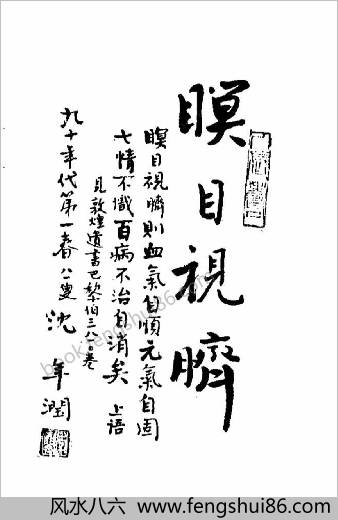 瞑目視臍
瞑目視臍則血氣自順元氣自固
七情不熾百病不治自消矣 上語
見敦煌遺書巴黎伯三八一〇卷
九十年代第一春 八叟 沈年潤
book.fengshui86.com
风水八六 www.fengshui86.com